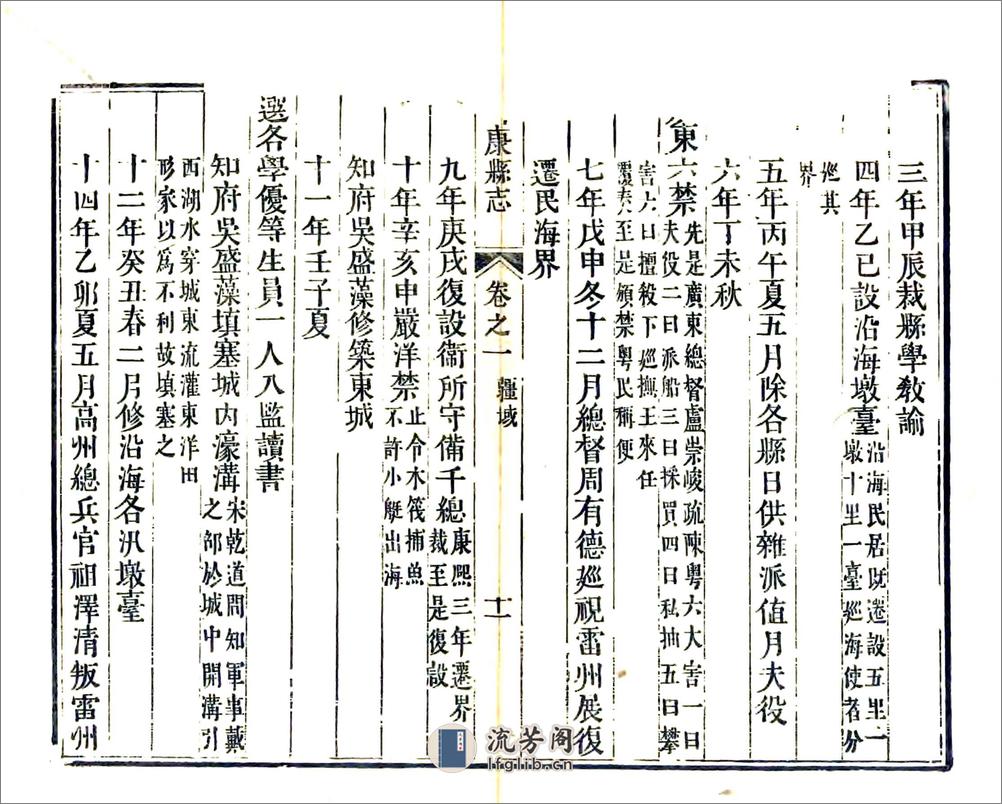 三年甲辰裁縣學敎諭
四年乙巳設沿海墩臺
沿海民居旣遷設五里一
墩十里一臺廵海使者分
廵其
界
五年丙午夏五月除各縣日供雜派值月夫役
六年丁未秋
東六禁
先是廣東總督盧崇峻疏陳粤六大害一曰
夫役二曰派船三曰採買四曰私抽五曰攀
害六曰擅殺下廵撫王來任
至是頒禁粤民稱便
七年戊申冬十二月總督周有德廵視雷州展復
遷民海界
康縣志
卷之一
疆域
十一
九年庚戌復設衛所守備千總
康熙三年遷界
裁至是復設
十年辛亥申嚴洋禁
止令木筏捕魚
不許小艇出海
知府吳盛藻修築東城
十一年壬子夏
選各學優等生員一人入監讀書
知府吳盛藻填塞城內濠溝
宋乾道間知軍事戴
之邵於城中開溝引
西湖水穿城東流灌東洋田
形家以爲不利故填塞之
十二年癸丑春二月修沿海各汛墩臺
十四年乙卯夏五月高州總兵官祖澤清叛雷州
流芳阁
lfglib.cn